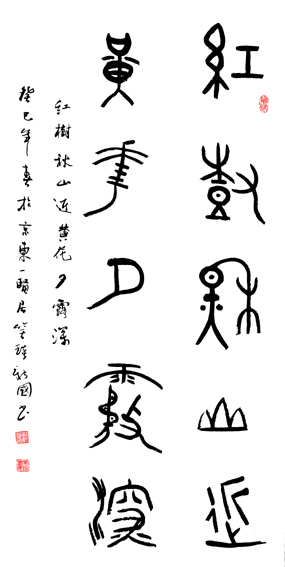 紅樹秋山近
黃花夕露深
红樹秋山近黄花夕露深
癸巳年春於京東一賢居